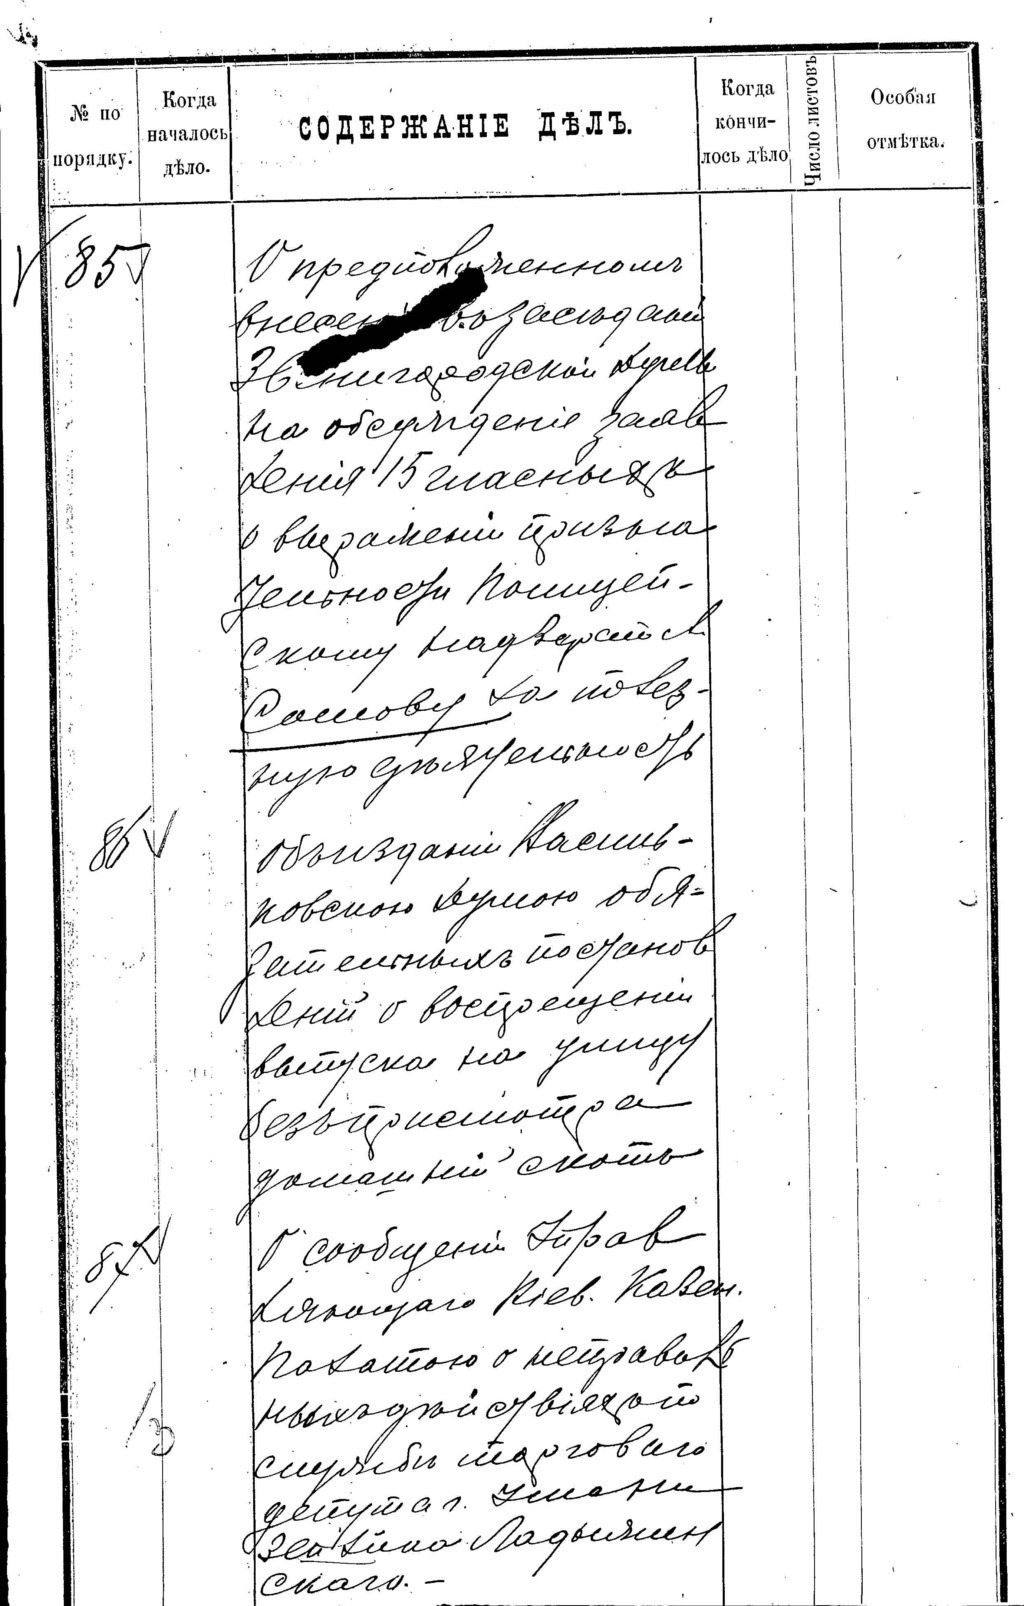 № по порядку.
Когда началось дѣло.
СОДЕРЖАНІЕ ДѢЛЪ.
Когда кончи-лось дѣло
Число листовъ
Особая отмѣтка.
85
О предположенномъ
въ засѣданій
Звенигородской Думы
на обсужденіе заяв
ленія 15 гласныхъ
о выраженіи призна
тельности Полицей-
скому надзирателю
за полез-
ную дѣятельность
86
Объ изданіи Василь-
ковскою Думою обя-
зательныхъ постанов
леній о воспрещеніи
выпуска на улицу
безъ присмотра
домашній скотъ
87
О сообщеніи Управ
ляющаго Кіев. Казен.
Палатою о неправиль
ныхъ дѣйствіяхъ по
службѣ торговаго
депутата г. Умани
Ладыжин
скаго. –